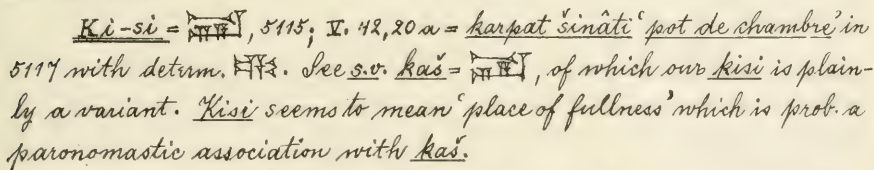 Ki-si = , 5115; V. 42, 20 a = karpat šinâti ‘pot de chambre’ in
5117 with determ. . See s.v. kaš = , of which our kisi is plain-
ly a variant. Kisi seems to mean ‘place of fullness’ which is prob. a
paronomastic association with kaš.